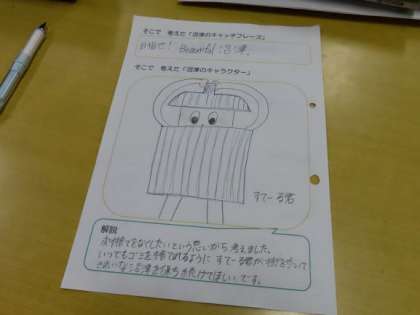 そこで 考えた「沼津のキャッチフレーズ」
目指せ！ Beautiful 沼津
そこで 考えた「沼津のキャラクター」
すてーる君
解説
をなくしたいという思いから考えました。
いつでもゴミを捨てれるように すてーる君が
きれいな沼津を保ち続けてほしいです。